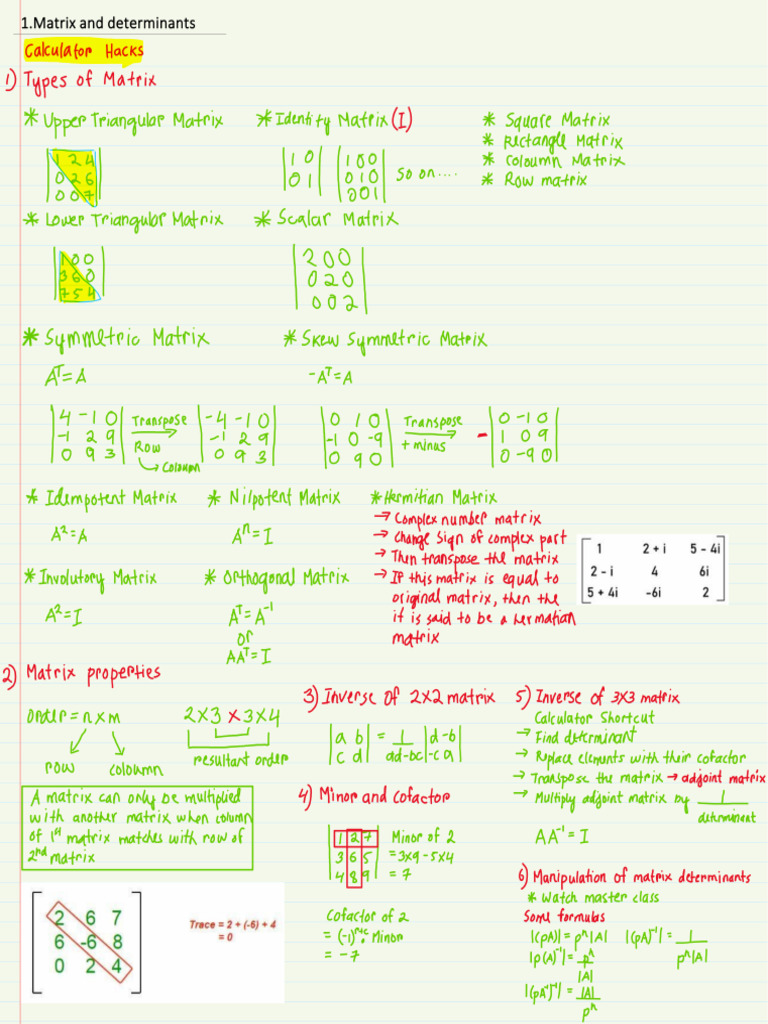 1.Matrix and determinants
Calculator Hacks
1) Types of Matrix
* Upper Triangular Matrix
1 2 4
0 2 6
0 0 7
* Identity Matrix (I)
1 0
0 1
1 0 0
0 1 0
0 0 1
So on....
* Square Matrix
* Rectangle Matrix
* Coloumn Matrix
* Row matrix
* Lower Triangular Matrix
1 0 0
3 6 0
7 5 4
* Scalar Matrix
2 0 0
0 2 0
0 0 2
* Symmetric Matrix
Aᵀ = A
4 -1 0
-1 2 9
0 9 3
Transpose
Row
Coloumn
-4 -1 0
-1 2 9
0 9 3
* Skew Symmetric Matrix
-Aᵀ = A
0 1 0
-1 0 -9
0 9 0
Transpose
+ minus
-
0 -1 0
1 0 9
0 -9 0
* Idempotent Matrix
A² = A
* Nilpotent Matrix
Aⁿ = I
* Hermitian Matrix
→ Complex number matrix
→ Change sign of complex part
→ Then transpose the matrix
→ If this matrix is equal to
original matrix, then the
it is said to be a hermatian
matrix
1 2 + i 5 - 4i
2 - i 4 6i
5 + 4i -6i 2
* Involutory Matrix
A² = I
* Orthogonal Matrix
Aᵀ = A⁻¹
or
AAᵀ = I
2) Matrix properties
Order = n x m
row
coloumn
2x3 x 3x4
resultant order
A matrix can only be multiplied
with another matrix when column
of 1st matrix matches with row of
2nd matrix
2 6 7
6 -6 8
0 2 4
Trace = 2 + (-6) + 4
= 0
3) Inverse of 2x2 matrix
|a b| = 1 |d -b|
|c d| ad-bc |-c a|
4) Minor and Cofactor
1 2 7
3 6 5
4 8 9
Minor of 2
= 3x9 - 5x4
= 7
Cofactor of 2
= (-1)ʳ⁺ᶜ • Minor
= -7
5) Inverse of 3x3 matrix
Calculator Shortcut
→ Find determinant
→ Replace elements with their cofactor
→ Transpose the matrix → adjoint matrix
→ Multiply adjoint matrix by 1
determinent
AA⁻¹ = I
6) Manipulation of matrix determinants
* Watch master class
Some formulas
|(pA)| = pⁿ|A| |(pA)⁻¹| = 1
pⁿ|A|
|p(A)⁻¹| = pⁿ
|A|
|(pA⁻¹)⁻¹| = |A|
pⁿ